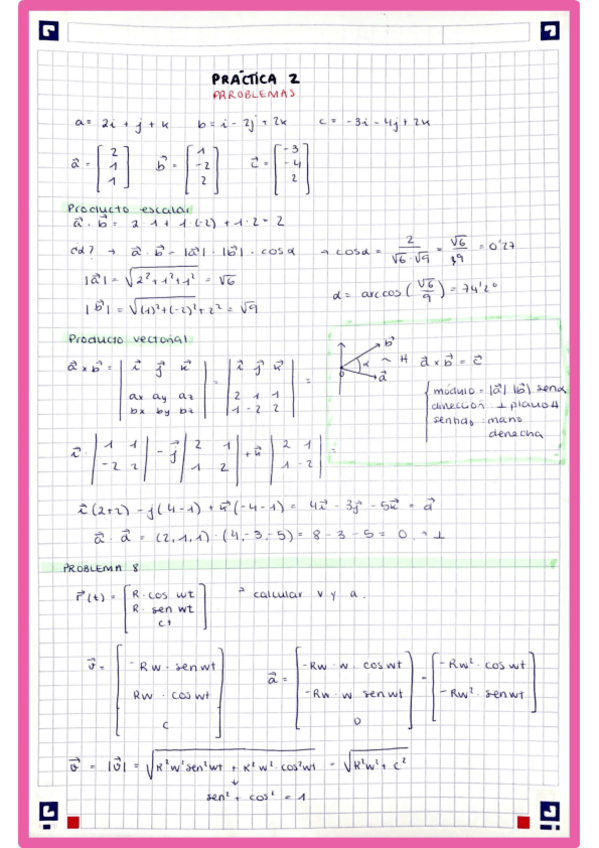 PRÁCTICA 2
PRROBLEMAS
a = 2i + j + k b = i - 2j + 2k c = -3i - 4j + 2k
a⃗ = [2 1 1] b⃗ = [1 -2 2] c⃗ = [-3 -4 2]
Producto escalar
a⃗ · b⃗ = 2·1 + 1·(-2) + 1·2 = 2
cα? → a⃗ · b⃗ = |a⃗| · |b⃗| · cosα → cosα = 2/(√6·√9) = √6/9 = 0'27
|a⃗| = √(2²+1²+1²) = √6
α = arccos (√6/9) = 74'2°
|b⃗| = √((1)²+(-2)²+2²) = √9
Producto vectorial
a⃗ x b⃗ = |i⃗ j⃗ k⃗ ax ay az bx by bz| = |i⃗ j⃗ k⃗ 2 1 1 1 -2 2| =
b⃗ α a⃗ 0 ~ H a⃗ x b⃗ = c⃗
módulo = |a⃗| |b⃗| senα
dirección ⊥ plano H
sentido: mano
derecha
i⃗ · |1 1 -2 2| - j⃗ |2 1 1 2| + k⃗ |2 1 1 -2| =
i⃗ (2+2) - j(4-1) + k⃗ (-4-1) = 4i⃗ - 3j⃗ - 5k⃗ = d⃗
a⃗ · d⃗ = (2,1,1) · (4,-3,-5) = 8 - 3 - 5 = 0 ⊥
PROBLEMA 8
r⃗(t) = [R·cos wt R·sen wt ct] calcular v y a.
v⃗ = [-Rw·senwt Rw·coswt c] a⃗ = [-Rw·w·coswt -Rw·w senwt 0] = [-Rw²·coswt -Rw²·senwt]
v⃗ = |v⃗| = √(R²w²sen²wt + R²w²·cos²wt = √(R²w² + c²)
sen² + cos² = 1